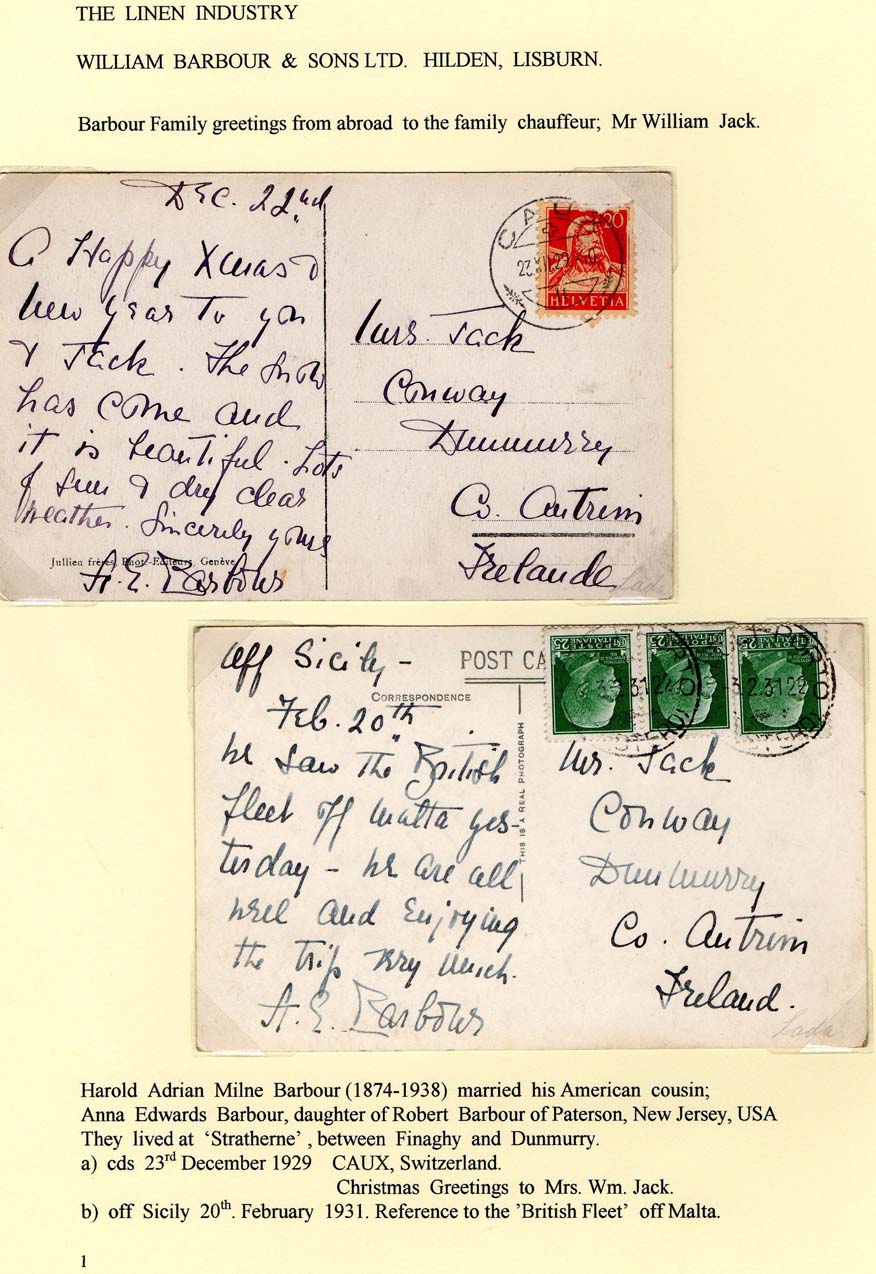 THE LINEN INDUSTRY
WILLIAM BARBOUR & SONS LTD. HILDEN, LISBURN.
Barbour Family greetings from abroad to the family chauffeur; Mr William Jack.
Dec. 22nd
A Happy Xmas &
New Year to you
& Jack. The snow
has come and
it is beautiful. Lots
of sun & dry clear
weather. Sincerely yours
A. E. Barbour
Jullien frères, Phot.-Editeurs, Genève
CAUX
23.XII.29
20
HELVETIA
Mrs. Jack
Conway
Dunmurry
Co. Antrim
Irelande
Off Sicily -
Feb. 20th
We saw the British
fleet off Malta yes-
terday - We are all
well and enjoying
the trip very much.
A. E. Barbour
POST CA
CORRESPONDENCE
THIS IS A REAL PHOTOGRAPH
POSTE ITALIANE
25
POSTE ITALIANE
25
POSTE ITALIANE
25
2.31.22
2.31.22
Mr. Jack
Conway
Dunmurry
Co. Antrim
Ireland.
Harold Adrian Milne Barbour (1874-1938) married his American cousin;
Anna Edwards Barbour, daughter of Robert Barbour of Paterson, New Jersey, USA
They lived at ‘Stratherne’ , between Finaghy and Dunmurry.
a) cds 23rd December 1929 CAUX, Switzerland.
Christmas Greetings to Mrs. Wm. Jack.
b) off Sicily 20th. February 1931. Reference to the ’British Fleet’ off Malta.
1